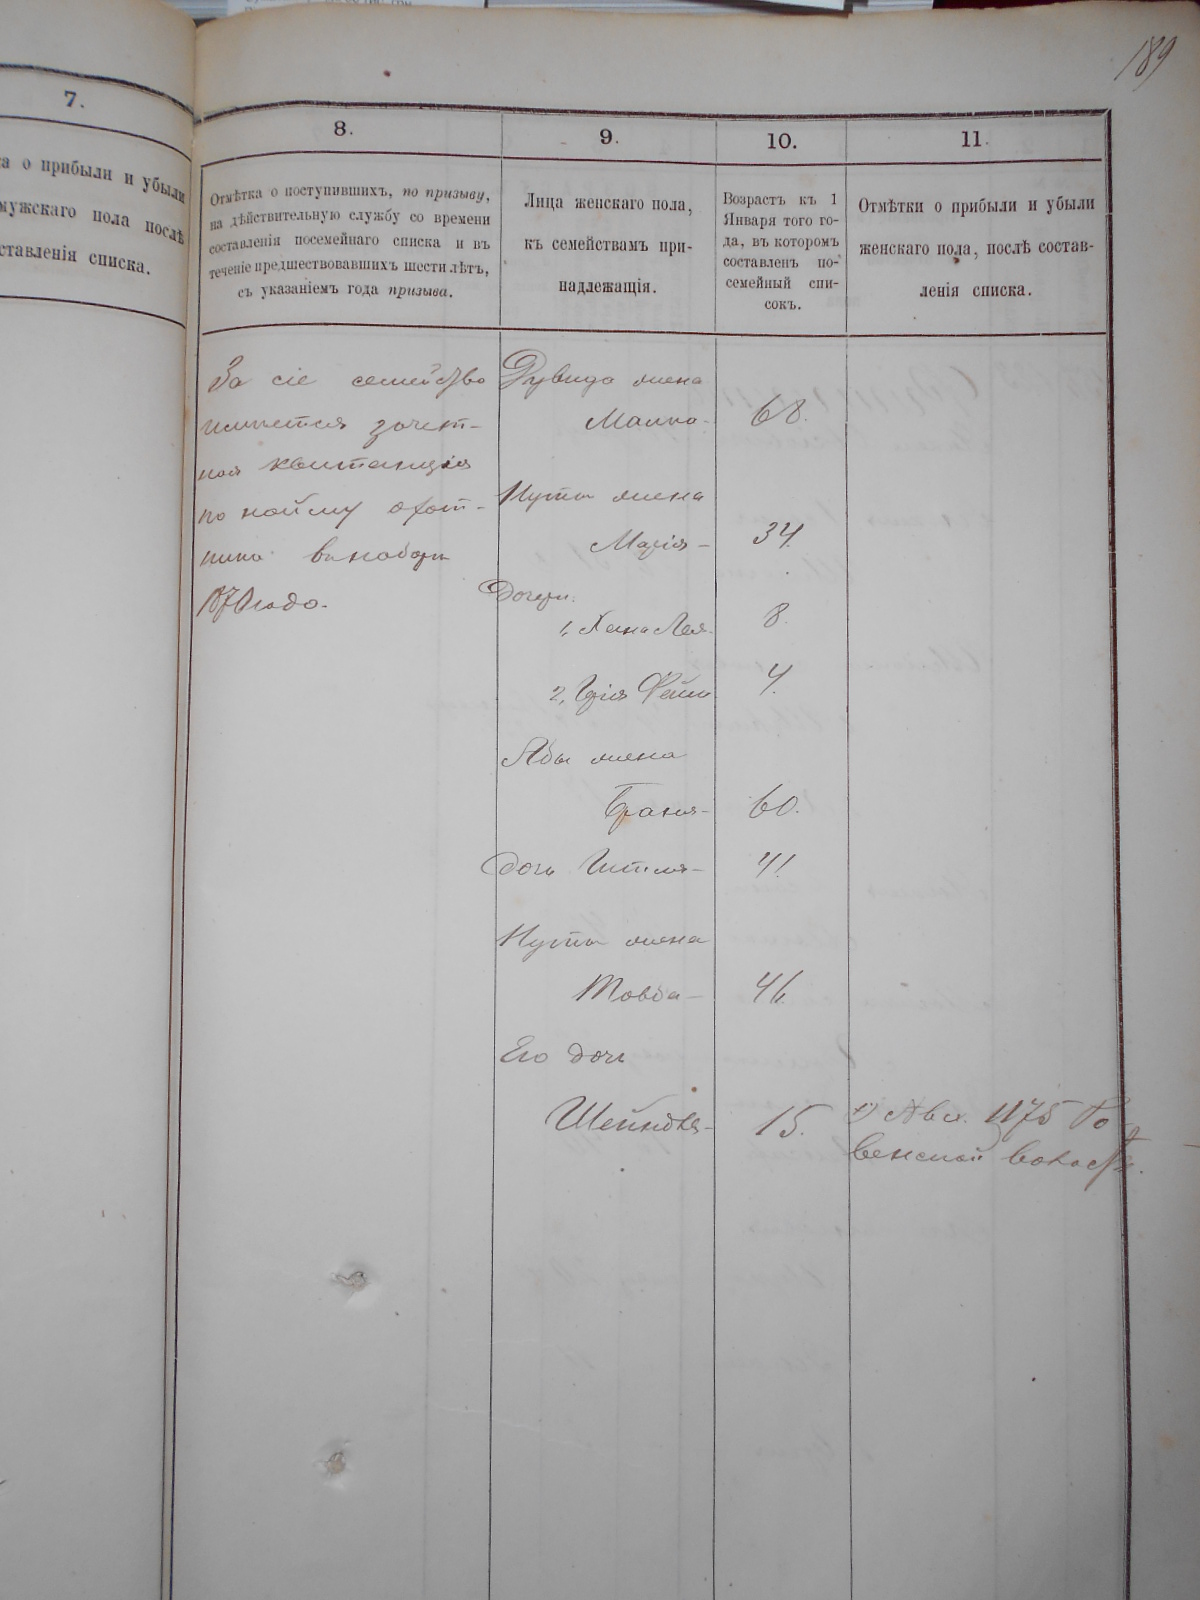 189
7.
а о прибыли и убыли
мужскаго пола послѣ
ставленія списка.
8.
Отмѣтка о поступившихъ, по призыву,
на дѣйствительную службу со времени
составленія посемейнаго списка и въ
теченіе предшествовавшихъ шести лѣтъ,
съ указаніемъ года призыва.
9.
Лица женскаго пола,
къ семействамъ при-
надлежащія.
10.
Возрастъ къ 1
Января того го-
да, въ которомъ
составленъ по-
семейный спи-
сокъ.
11.
Отмѣтки о прибыли и убыли
женскаго пола, послѣ состав-
ленія списка.
За сіе семейство
имѣется зачет-
ная квитанція
по найму охот-
ника въ наборъ
года.
жена
Малка 68.
Нуты жена
Марія 34.
Дочери:
1, Хана Лея 8.
2, Фейга 4.
Абы жена
Браня 60.
Дочь Гитля 41.
Нуты жена
Товба 46.
Его дочь
Шейндля 15.
1175 Ро
венской волости.